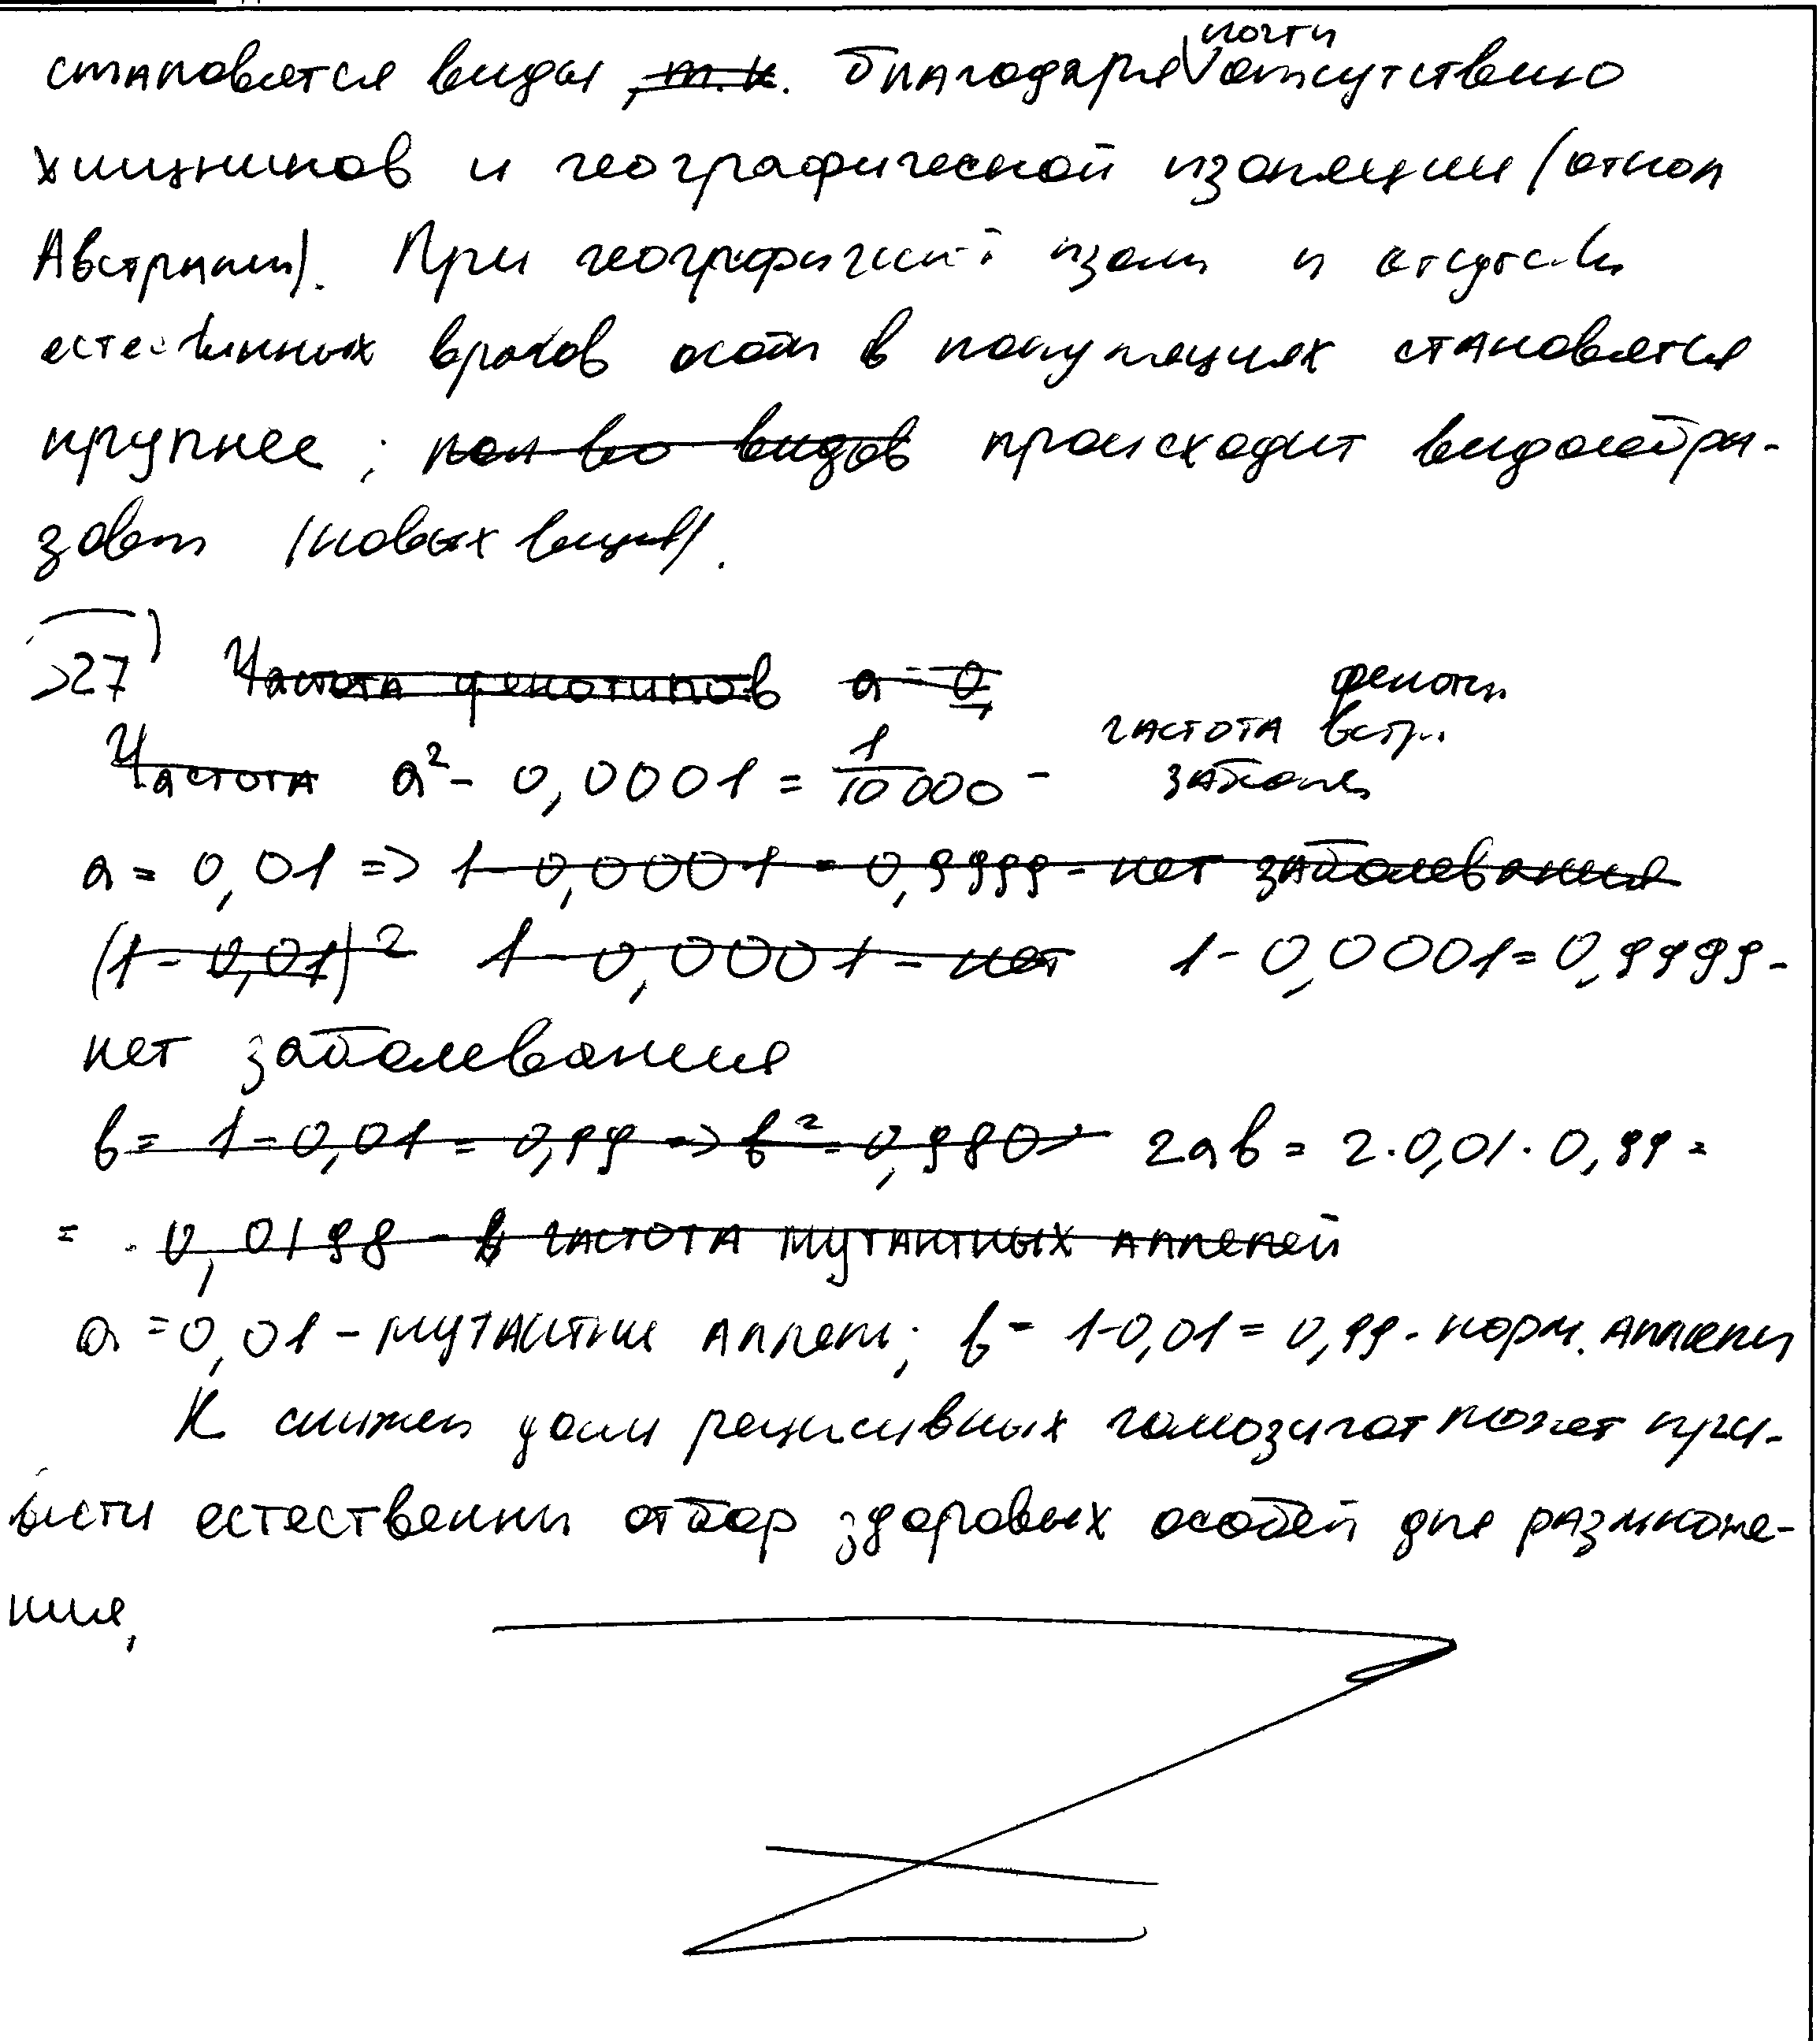 становятся виды, т.к. благодаря почти отсутствию
хищников и географической изоляции (откол
Австралии). При географич изол и отсутств
естественных врагов особи в популяциях становятся
крупнее; кол-во видов происходит видообра-
зоват (новых видов).
27) Частота фенотипов a = 0,
Частота a² - 0,0001 = 1/10000 - частота встр. фенотип. заболев
a = 0,01 => 1 - 0,0001 = 0,9999 - нет заболевания
(1 - 0,01)² 1 - 0,0001 - нет 1 - 0,0001 = 0,9999 -
нет заболевания
b = 1 - 0,01 = 0,99 => b² = 0,980 2ab = 2·0,01·0,99 =
= 0,0198 - частота мутантных аллелей
a = 0,01 - мутантные аллели; b = 1-0,01 = 0,99 - норм. аллели
К снижен доли рецисивных гомозигот может при-
вести естественн отбор здоровых особей для размноже-
ния,